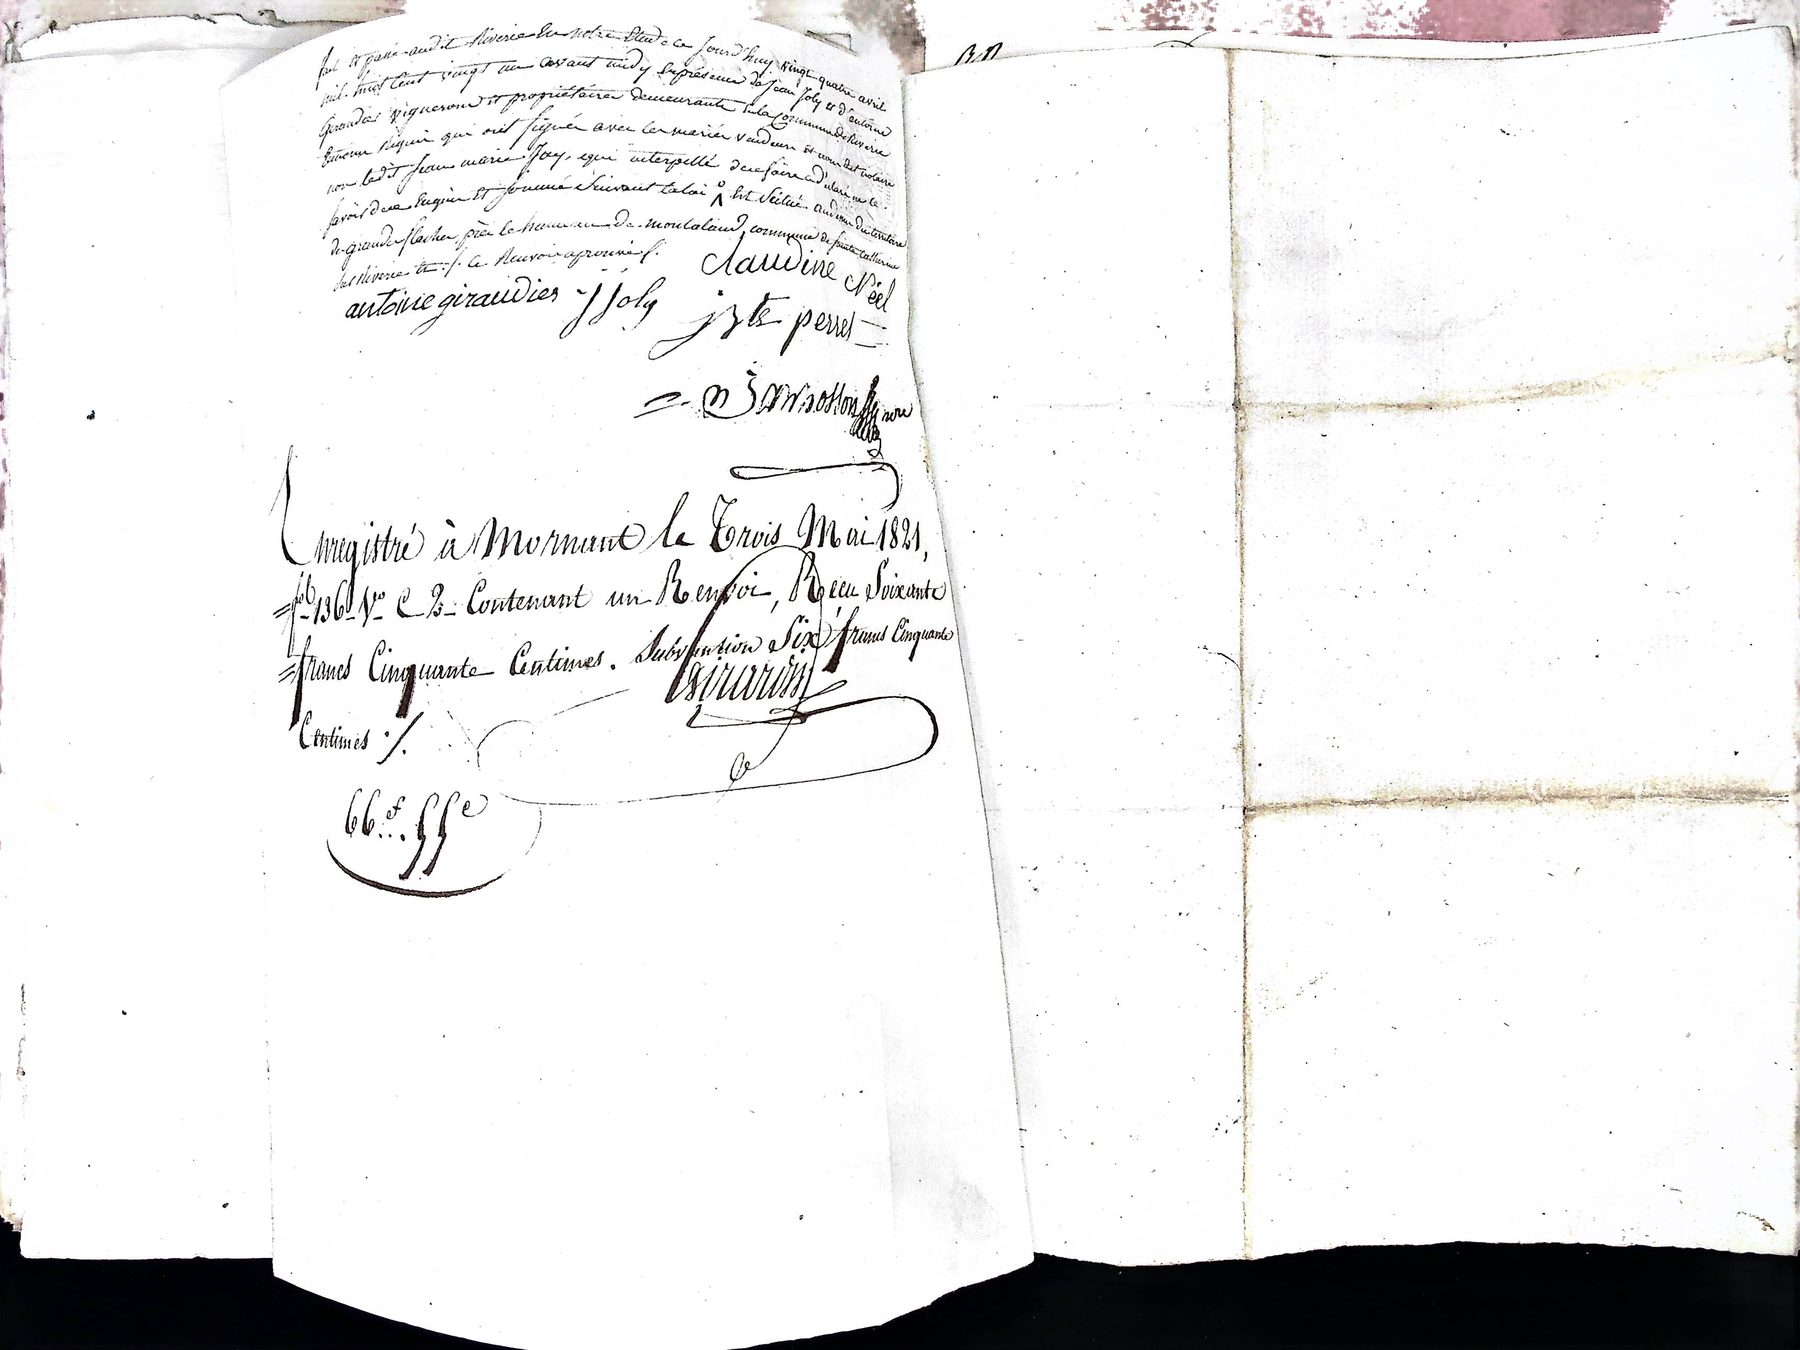 fait et passé audit Riverie En notre Etude ce jourd'huy vingt quatre avril
mil huit Cent vingt un avant midy En présence de Jean Joly et d'antoine
Giraudier vignerons et propriétaires demeurants En la Commune de Riverie
témoins Requis qui ont signés avec les mariés vendeurs et nous dit notaire
non ledit Jean marie Joly, qui interpellé de ce faire a déclaré ne le
savoir de ce Enquis et sommé suivant la loi Est située au dit territoire
de grande flache près le hameau de montaland commune de sainte Catherine
sur Riverie le Renvoi aprouvé
Claudine Néel
antoine giraudier J Joly
jbte perret
nore
Enregistré à Mornant le Trois Mai 1821,
fo 136 Vo C 2 Contenant un Renvoi, Recu Soixante
francs Cinquante Centimes. Subvention Six francs Cinquante
Girardin
Centimes ./.
66f. 55c